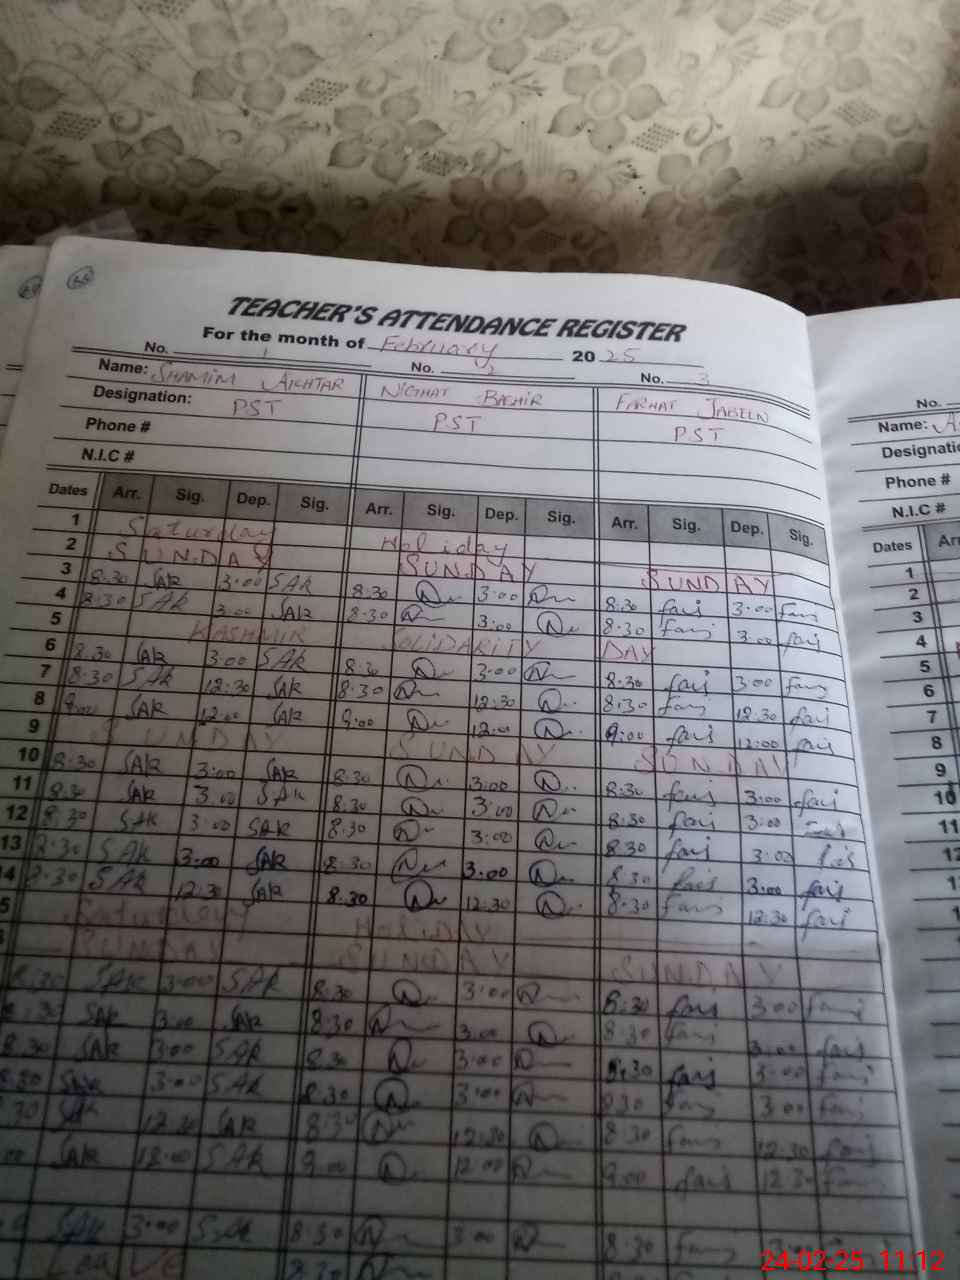 TEACHER'S ATTENDANCE REGISTER
For the month of February 2025
No. 1 No. 2 No. 3
Name: SHAMIM AKHTAR NIGHAT BASHIR FARHAT JABEEN
Designation: PST PST PST
Phone #
N.I.C #
Dates Arr. Sig. Dep. Sig. Arr. Sig. Dep. Sig. Arr. Sig. Dep. Sig.
1 Saturday Holiday
2 SUNDAY SUNDAY SUNDAY
3 8:30 SAK 3:00 SAK 8:30 3:00 8:30 3:00
4 8:30 SAK 3:00 SAK 8:30 3:00 8:30 3:00
5 KASHMIR SOLIDARITY DAY
6 8:30 SAK 3:00 SAK 8:30 3:00 8:30 3:00
7 8:30 SAK 12:30 SAK 8:30 12:30 8:30 12:30
8 9:00 SAK 12:00 SAK 9:00 12:00 9:00 12:00
9 SUNDAY SUNDAY SUNDAY
10 8:30 SAK 3:00 SAK 8:30 3:00 8:30 3:00
11 8:30 SAK 3:00 SAK 8:30 3:00 8:30 3:00
12 8:30 SAK 3:00 SAK 8:30 3:00 8:30 3:00
13 8:30 SAK 3:00 SAK 8:30 3:00 8:30 3:00
14 8:30 SAK 12:30 SAK 8:30 12:30 8:30 12:30
5 Saturday HoLiDAY
SUNDAY SUNDAY SUNDAY
8:30 SAK 3:00 SAK 8:30 3:00 8:30 3:00
8:30 SAK 3:00 SAK 8:30 3:00 8:30 3:00
8:30 SAK 3:00 SAK 8:30 3:00 8:30 3:00
8:30 SAK 3:00 SAK 8:30 3:00 8:30 3:00
:30 SAK 12:30 SAK 8:30 12:30 8:30 12:30
:00 SAK 12:00 SAK 9:00 12:00 9:00 12:30
SAK 3:00 SAK 8:30 3:00 8:30 3:00
8:30
No.
Name:
Designatio
Phone #
N.I.C #
Dates Arr
1
2
3
4
5
6
7
8
9
10
11
12
24-02-25 11:12